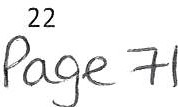 22
Page 71